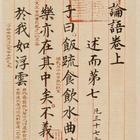 論語卷上
述而第七 凡三十七
子曰飯疏食飲水曲
樂亦在其中矣不義
於我如浮雲